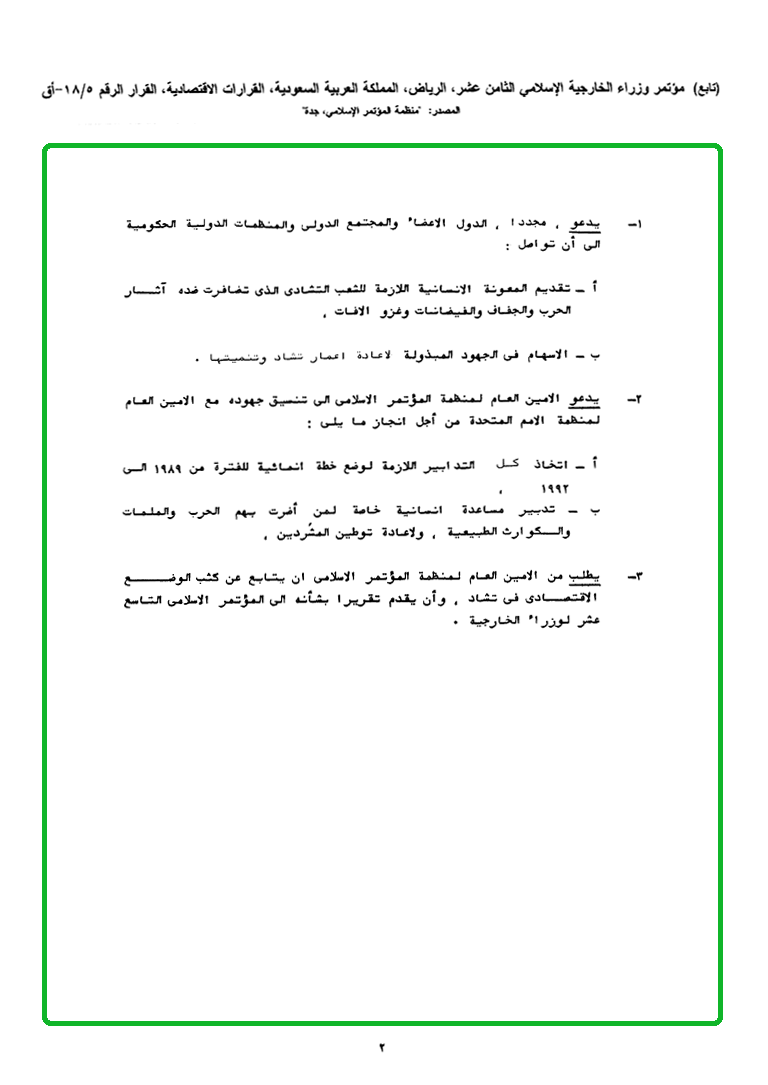 (تابع) مؤتمر وزراء الخارجية الإسلامي الثامن عشر، الرياض، المملكة العربية السعودية، القرارات الاقتصادية، القرار الرقم ١٨/٥-أق
المصدر: "منظمة المؤتمر الإسلامي، جدة"
١- يدعو ، مجددا ، الدول الاعضاء والمجتمع الدولى والمنظمات الدولية الحكومية
الى أن تواصل :
أ ـ تقديم المعونة الانسانية اللازمة للشعب التشادى الذى تضافرت ضده آثـــار
الحرب والجفاف والفيضانات وغزو الافات ،
ب ـ الاسهام فى الجهود المبذولة لاعادة اعمار تشاد وتنميتها .
٢- يدعو الامين العام لمنظمة المؤتمر الاسلامى الى تنسيق جهوده مع الامين العام
لمنظمة الامم المتحدة من أجل انجاز ما يلى :
أ ـ اتخاذ كل التدابير اللازمة لوضع خطة انمائية للفترة من ١٩٨٩ الـى
١٩٩٢ ،
ب ـ تدبير مساعدة انسانية خاصة لمن أضرت بهم الحرب والملمات
والــكوارث الطبيعية ، ولاعادة توطين المشّردين ،
٣- يطلب من الامين العام لمنظمة المؤتمر الاسلامى ان يتابع عن كثب الوضـــــع
الاقتصــادى فى تشاد ، وأن يقدم تقريرا بشأنه الى المؤتمر الاسلامى التاسع
عشر لوزراء الخارجية .
٢